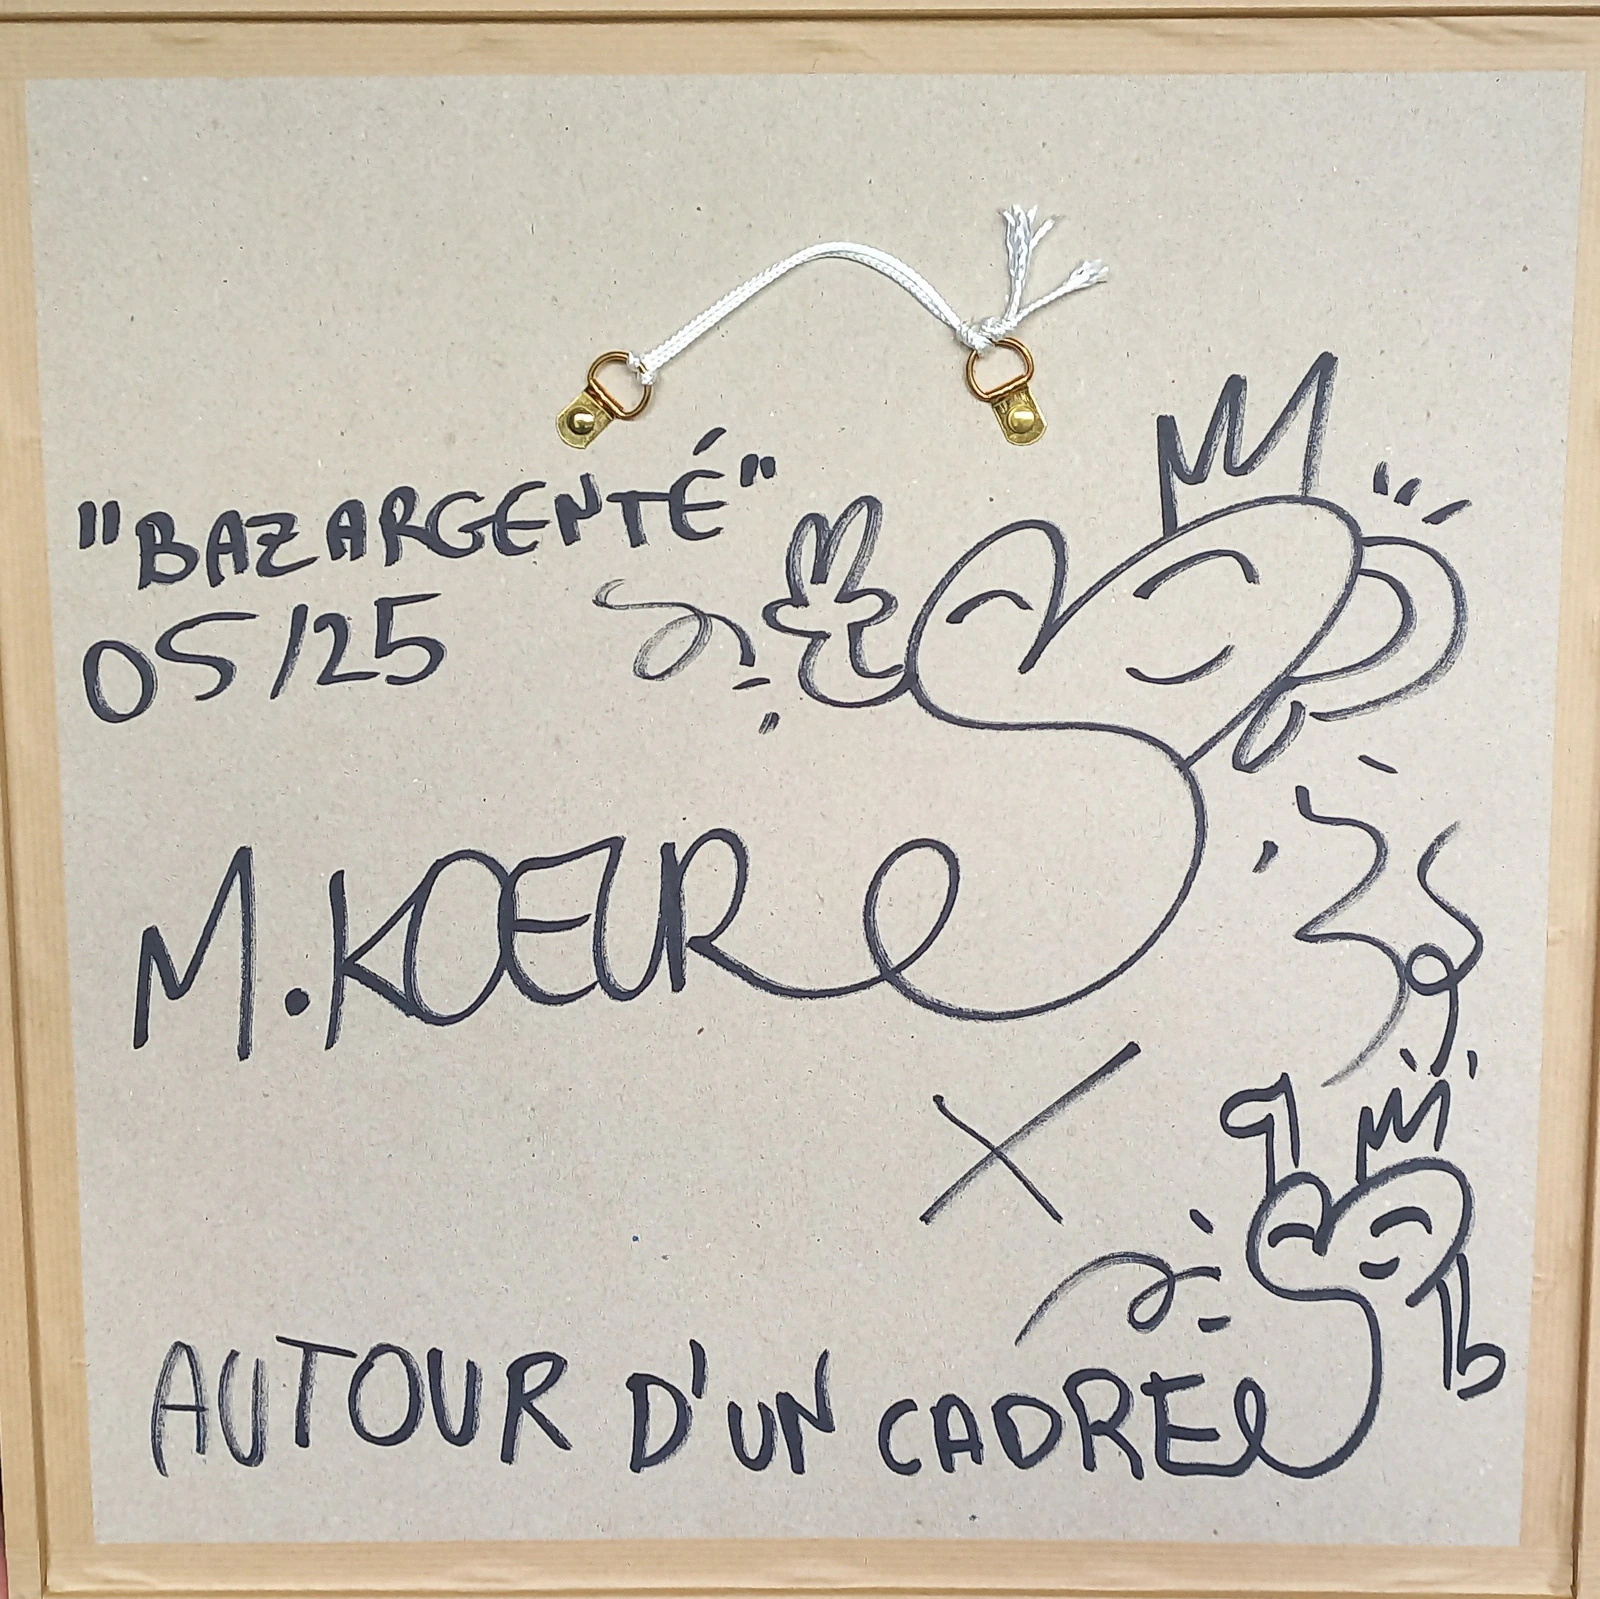 "BAZARGENTÉ"
05/25
M.KOEUR
X
AUTOUR D'UN CADRE